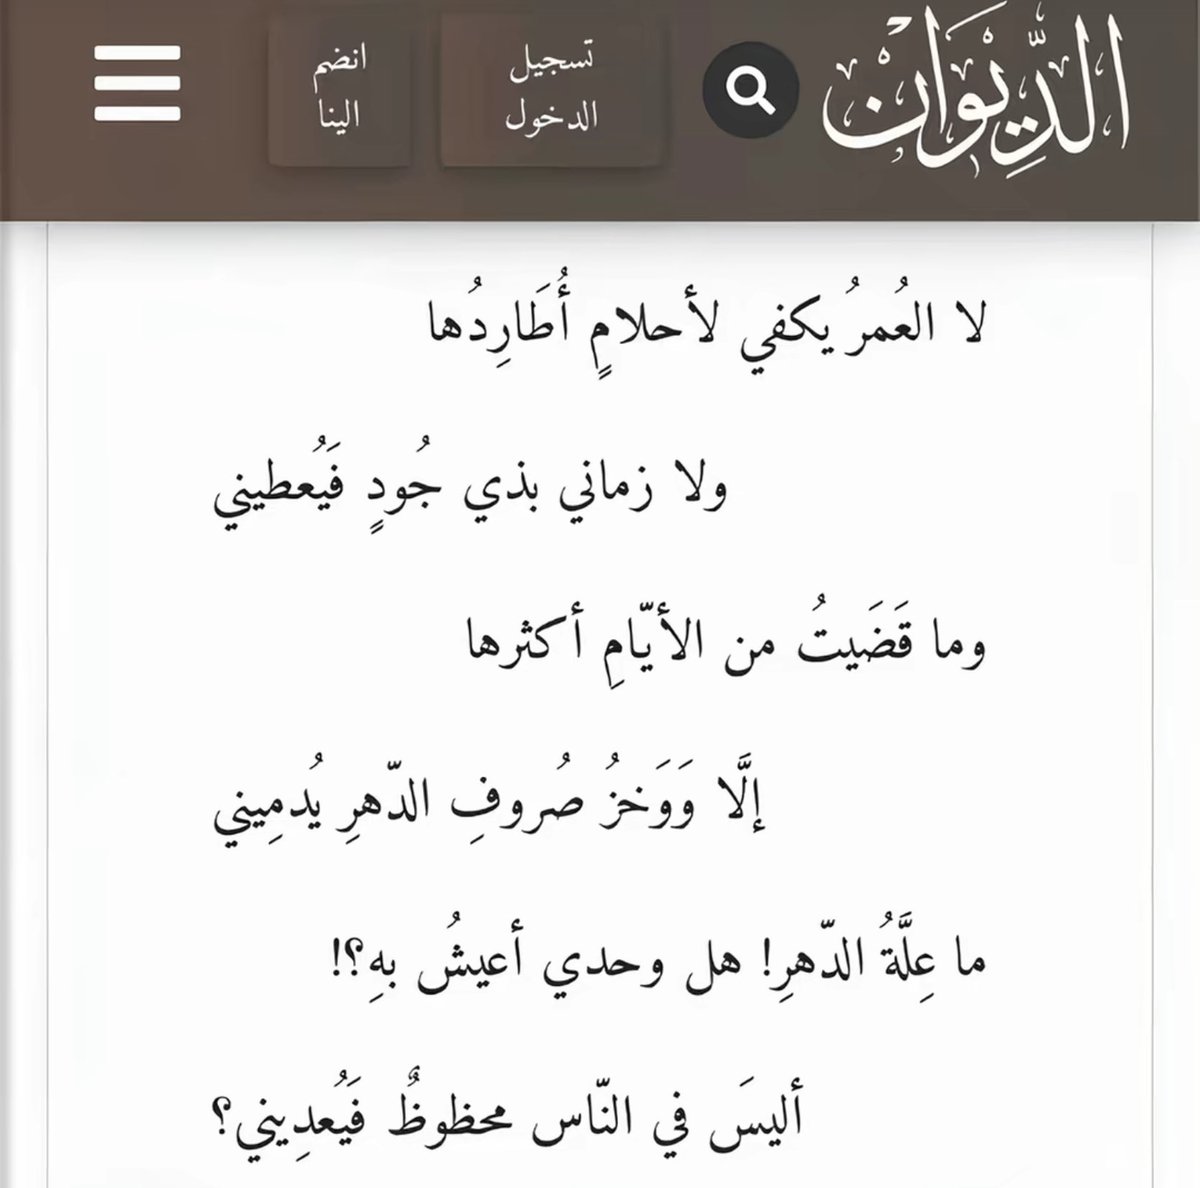 الدِّيوَانْ
تسجيل
الدخول
انضم
الينا
لا العُمرُ يكفي لأحلامٍ أُطَارِدُها
ولا زماني بذي جُودٍ فَيُعطيني
وما قَضَيتُ من الأيّامِ أكثرها
إلَّا وَوَخزُ صُروفِ الدّهرِ يُدمِيني
ما عِلَّةُ الدّهرِ! هل وحدي أعيشُ بهِ؟!
أليسَ في النّاس محظوظٌ فَيُعدِيني؟